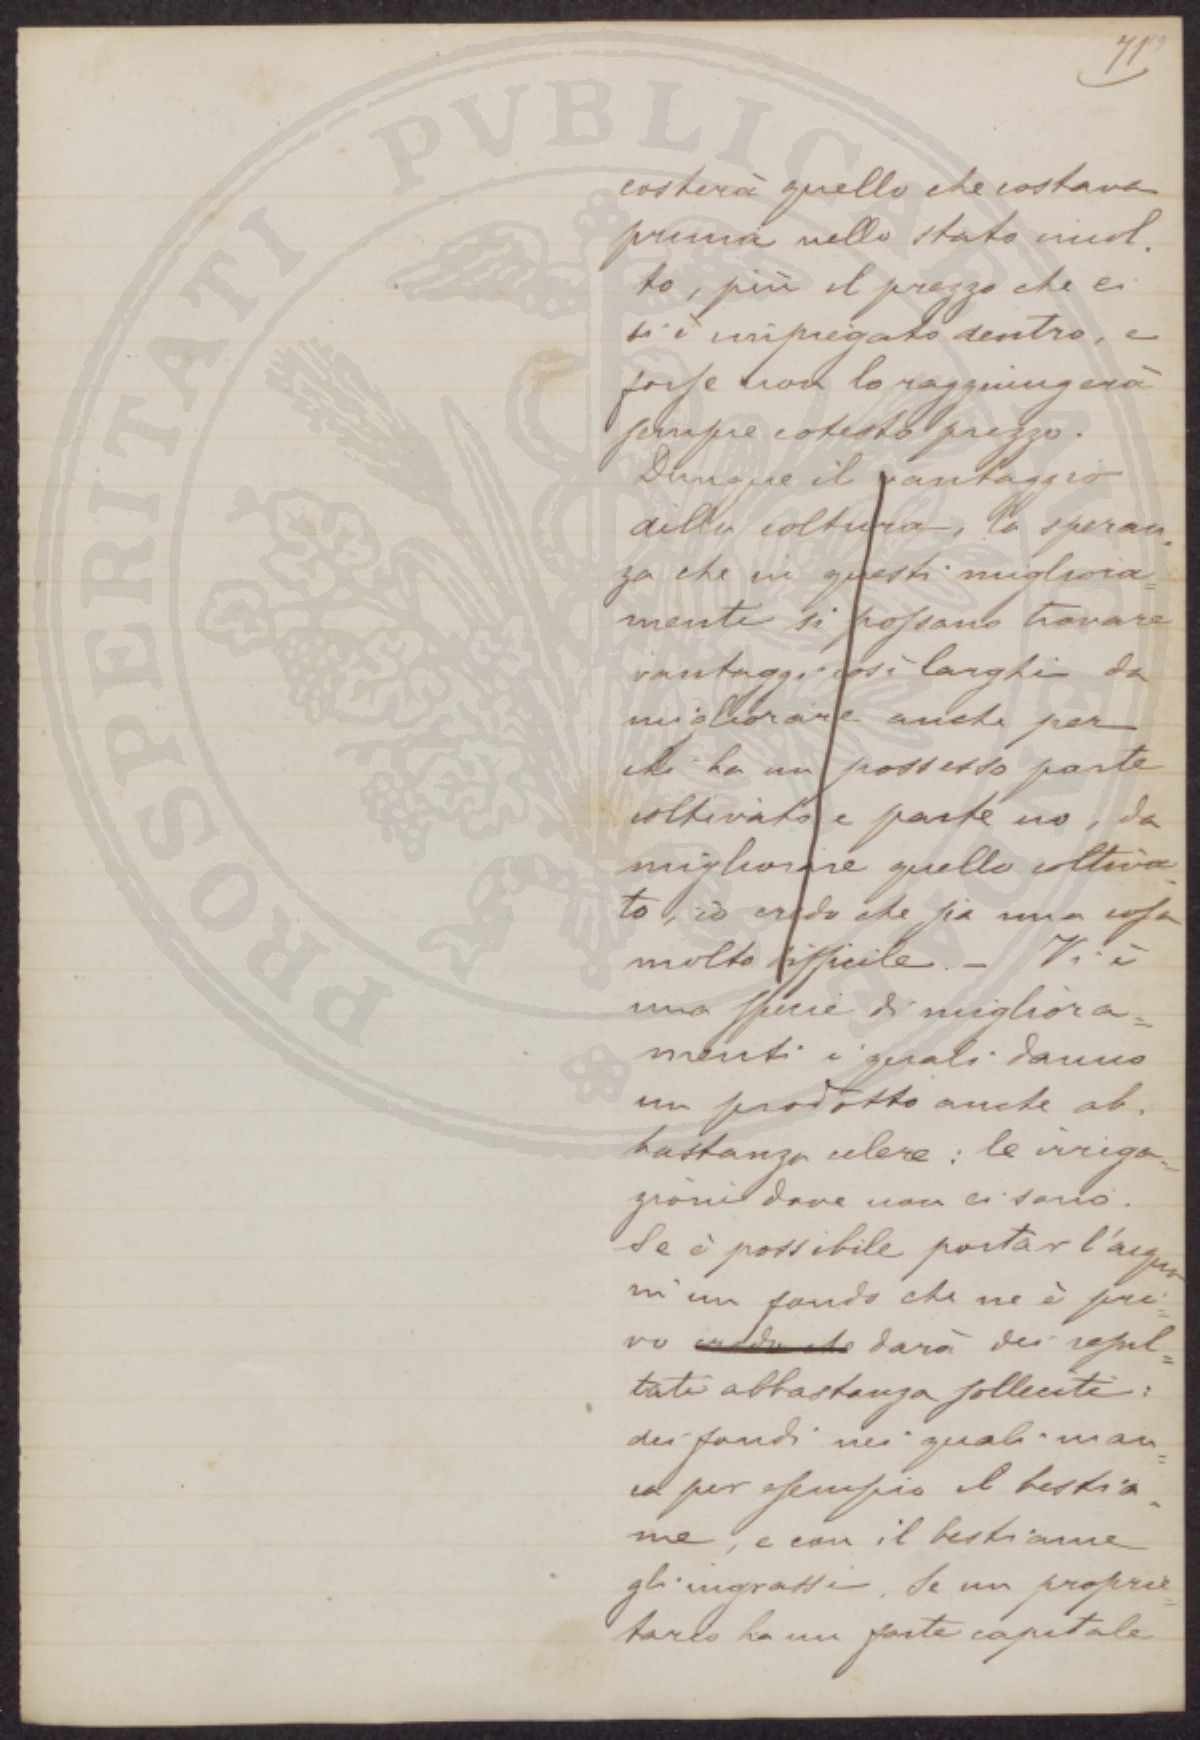 71
PROSPERITATI PVBLICAE AVGENDAE
costerà quello che costava
prima nello stato incol.
to, più il prezzo che ci
si è impiegato dentro, e
forse non lo raggiungerà
sempre cotesto prezzo.
Dunque il vantaggio
della coltura, la speran„
za che in questi migliora=
menti si possano trovare
vantaggi così larghi da
migliorare anche per
chi ha un possesso parte
coltivato e parte no, da
migliorare quello coltiva„
to, io credo che sia una cosa
molto difficile. – Vi è
una specie di migliora=
menti i quali danno
un prodotto anche ab.
bastanza celere: le irriga=
zioni dove non ci sono.
Se è possibile portar l'acqua
in un fondo che ne è pri=
vo credo che darà dei resul=
tati abbastanza solleciti:
dei fondi nei quali man=
ca per esempio il bestia„
me, e con il bestiame
gli ingrassi. Se un proprie=
tario ha un forte capitale